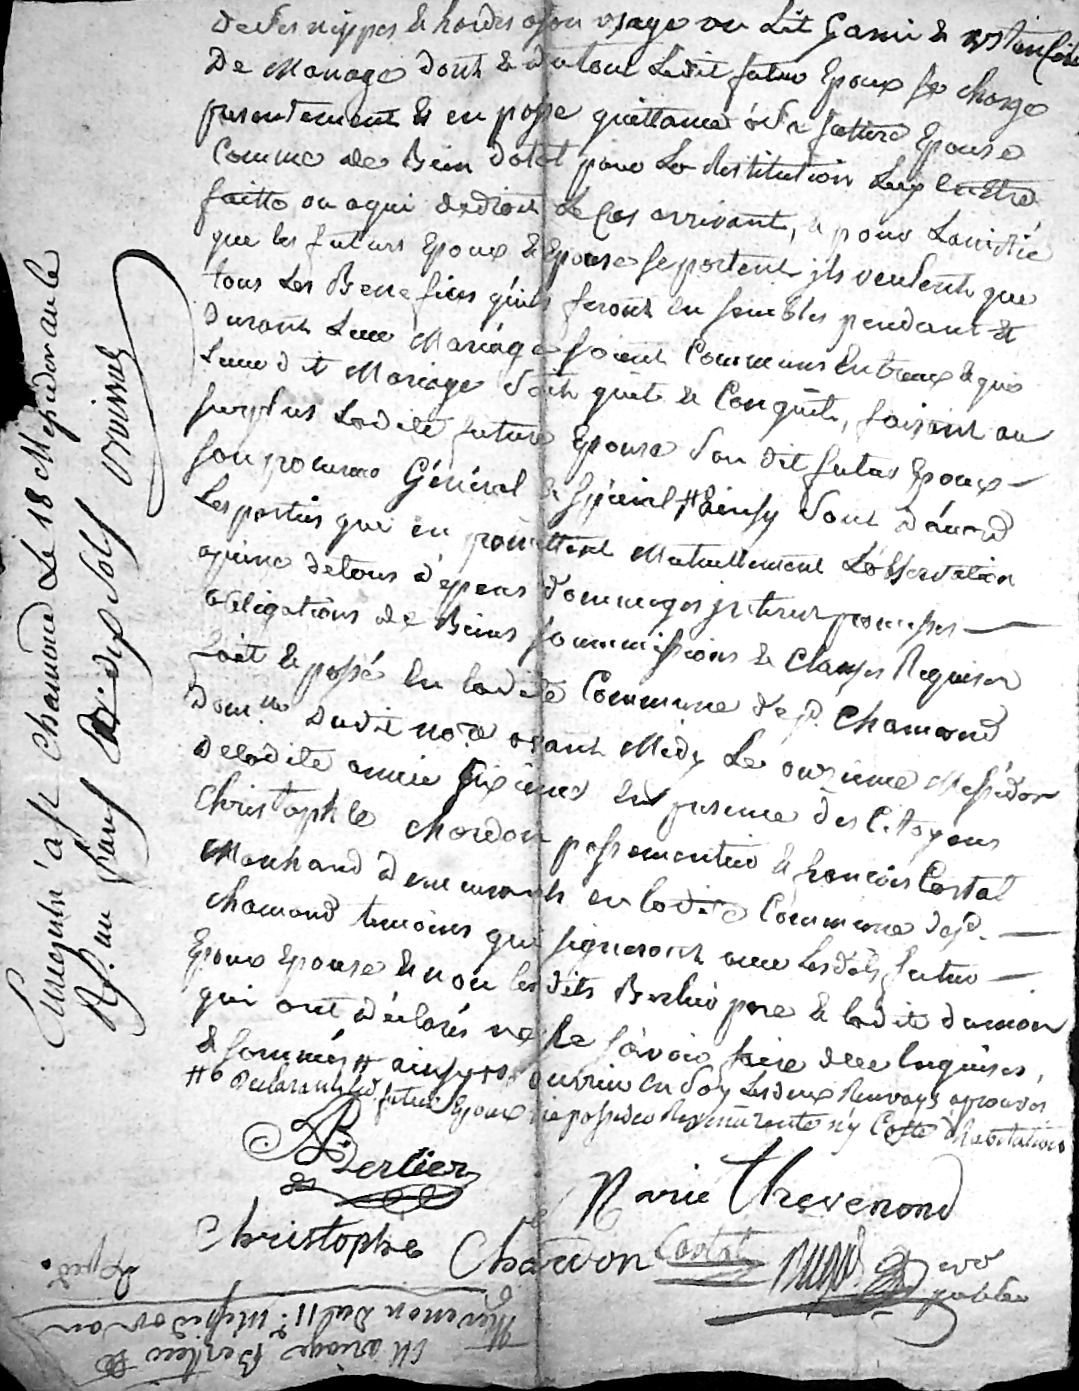 de ses nippes & hardes a son usage un Lit Garni & ustensiles
De Menage dont & du tout Ledit futur Epoux se charge
presentement & en passe quittance a sa future Epouse
Comme de Bien dotal pour La Restitution Luy en etre
faitte ou a qui de droit Le Cas arrivant, & pour Lamitié
que les futurs Epoux & Epouse se portent ils veulent que
tous Les Benefices quils feront Ensembles pendant &
Durant Leur Mariage soient Communs Entreux & que
Leur dit Mariage soit quête & Conquête, faisant au
surplus Ladite future Epouse Son dit futur Epoux
son procureur Général & spécial # Ainsy Sont d'acord
Les parties qui en promettent Mutuellement L'observation
apeine de tous d'epens dommages interets promesses
obligations de Biens soummissions & Clauses Requises
fait & passé en ladite Commune de St. Chamond
Dom.lle dudit no.re avant Midy Le onzieme Messidor
de ladite année sixieme en presence des Citoyens
Christophle chardon passementier & francois Costat
Marchand demeurants en ladite Commune de St.
chamond temoins qui signeront avec Lesdits futur
Epoux Epouse & non lesdits Berlier pere & ladite damon
qui ont déclarés ne le sávoir faire de ce Enquises,
& sommés # ainsy
#o Declarant led. futur Epoux ne posseder Rentes ny Cotte d'habitations
Berlier
Marie Thevenond
Christophe Chardon Costat
public
Enregistré a St Chamond Le 18 Messidor an 6e
R. un franc dix sols
Mariage Berlier &
Thevenon Du 11.e Messidor an
6
Exped.